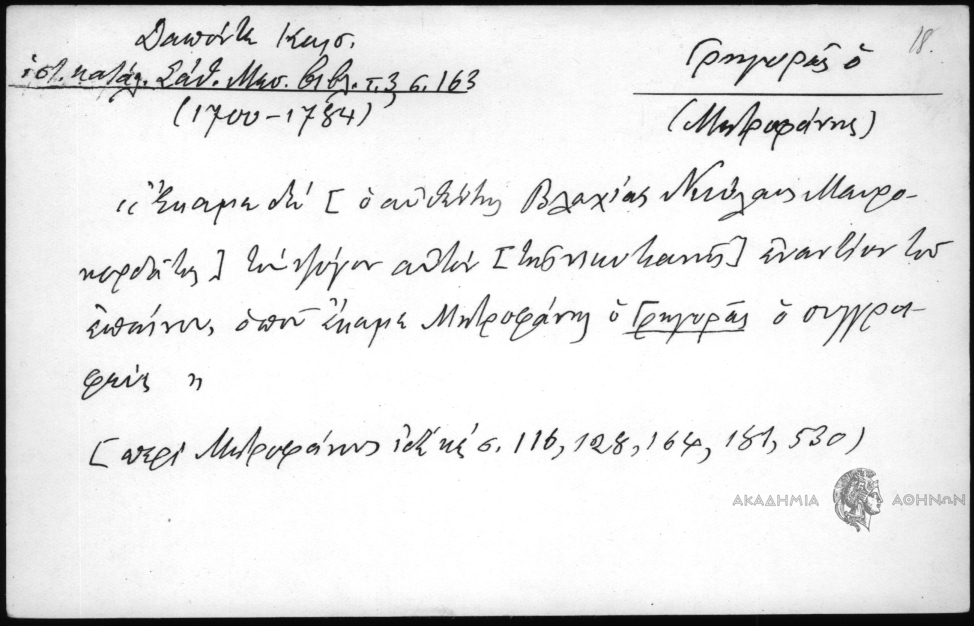 Δαπόντε Καισ.
ἱστ. κατάλ. Σάθ. Μεσ. βιβλ. τ. 3 σ. 163
(1700-1784)
18.
Γρηγορᾶς ὁ
(Μητροφάνης)
"Ἔκαμε δὲ [ὁ αὐθέντης Βλαχίας Νικόλαος Μαυρο-
κορδάτος] τὸν ψόγον αὐτὸν [τῆς νικοτιανῆς] ἐναντίον τοῦ
ἐπαίνου, ὁποῦ ἔκαμε Μητροφάνης ὁ Γρηγορᾶς ὁ συγγρα-
φεύς"
[περὶ Μητροφάνους ἰδὲ καὶ σ. 116, 128, 164, 181, 530)
ΑΚΑΔΗΜΙΑ ΑΘΗΝΩΝ